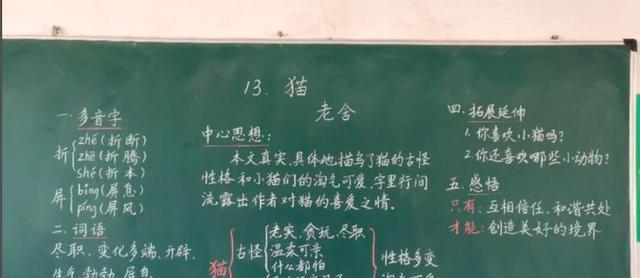 13. 猫
老舍
一. 多音字
折 zhé(折断)
zhē(折腾)
shé(折本)
屏 bǐng(屏息)
píng(屏风)
二. 词语
尽职、变化多端、开辟、
生气勃勃、屏息
中心思想:
本文真实、具体地描写了猫的古怪
性格和小猫们的淘气可爱,字里行间
流露出作者对猫的喜爱之情。
猫 古怪 老实、贪玩、尽职
温柔可亲
什么都怕
性格多变
四. 拓展延伸
1. 你喜欢小猫吗?
2. 你还喜欢哪些小动物?
五. 感悟
只有: 互相信任、和谐共处
才能: 创造美好的境界